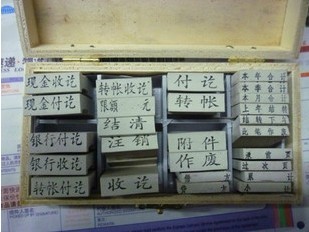 现金收讫
现金付讫
银行付讫
银行收讫
转帐付讫
转帐收讫
限额 元
结清
注销
收讫
付讫
转帐
附件
作废
本年合计
本季合计
本月合计
上年结转
结转下年
承前页
过次页
累计